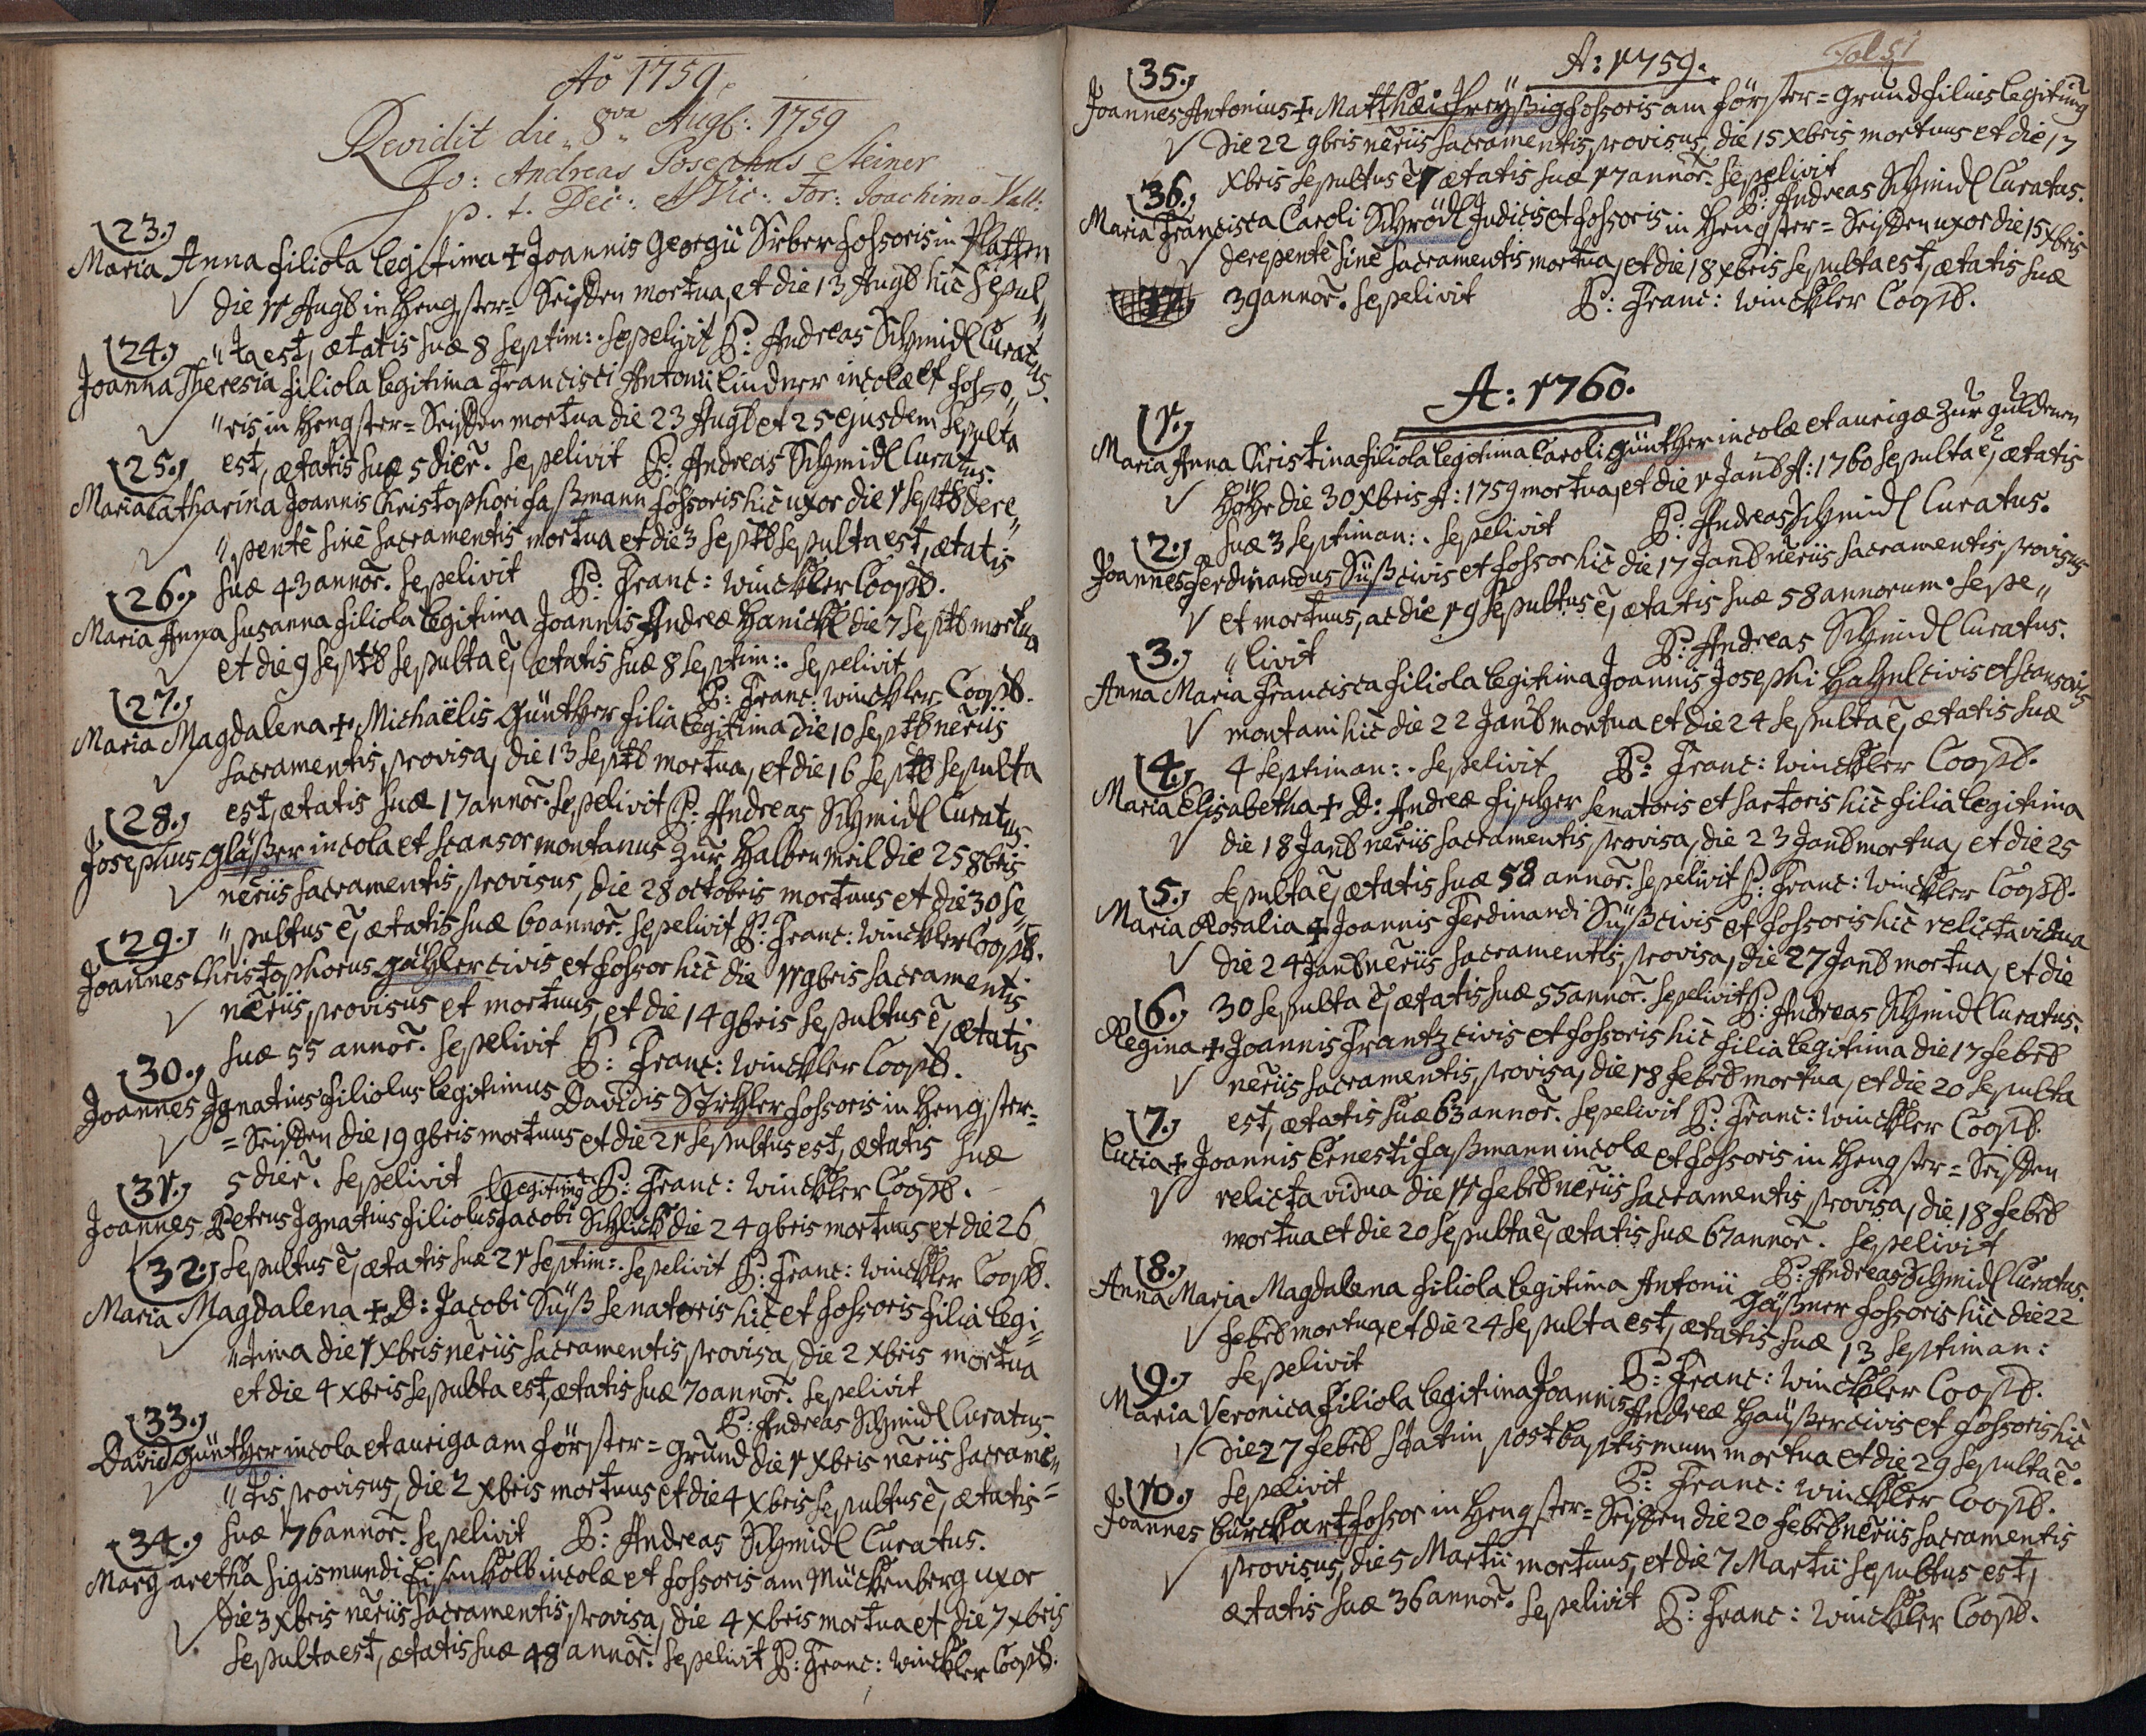 Aõ 1759.
Revidit die 8va Augs: 1759
Jo: Andreas Josephus Steiner
p. t. Dec: Vic: For: Joachimo-Vall:
23.
Maria Anna filiola legitima + Joannis Georgii Sieber fossoris in Platten
die 11 Augs in Hengster= Seiffen mortua, et die 13 Augs hic sepul„
„ta est, ætatis suæ 8 septim: . sepelivit P: Andreas Schmidl Curatus.
24.
Joanna Theresia filiola legitima Francisci Antonii Lindner incolæ et fosso„
„ris in Hengster= Seiffen mortua die 23 Augs et 25 ejusdem sepulta
est, ætatis suæ 5 dier. sepelivit P: Andreas Schmidl Curatus.
25.
Maria Catharina Joannis Christophori Faßmann fossoris hic uxor die 1 Septb dere„
„pente sine sacramentis mortua et die 3 Septb sepulta est, ætatis
suæ 43 annor. sepelivit P: Franc: Winckler Coop.
26.
Maria Anna Susanna filiola legitima Joannis Andreæ Hanickl die 7 Septb mortua
et die 9 Septb sepulta ẽ, ætatis suæ 8 septim: . sepelivit
P: Franc: Winckler Coop.
27.
Maria Magdalena + Michaëlis Günther filia legitima die 10 Septb neriis
sacramentis provisa, die 13 Septb mortua, et die 16 Septb sepulta
est, ætatis suæ 17 annor. sepelivit P: Andreas Schmidl Curatus.
28.
Josephus Gläßer incola et scansor montanus zur Halben Meil die 25 8bris
neriis sacramentis provisus, die 28 octobris mortuus et die 30 se„
„pultus ẽ, ætatis suæ 60 annor. sepelivit P: Franc: Winckler Coop.
29.
Joannes Christophorus Gähler civis et fossor hic die 11 9bris sacramentis
neriis provisus et mortuus, et die 14 9bris sepultus ẽ, ætatis
suæ 55 annor. sepelivit P: Franc: Winckler Coop.
30.
Joannes Ignatius filiolus legitimus Davidis Störzer fossoris in Hengster=
= Seiffen die 19 9bris mortuus et die 21 sepultus est, ætatis suæ
5 dier. sepelivit P: Franc: Winckler Coop.
31.
legitimus
Joannes Petrus Ignatius filiolus Jacobi Schlick die 24 9bris mortuus et die 26
sepultus ẽ, ætatis suæ 21 septim: . sepelivit P: Franc: Winckler Coop.
32.
Maria Magdalena + D: Jacobi Süß senatoris hic et fossoris filia legi„
„tima die 1 Xbris neriis sacramentis provisa, die 2 Xbris mortua
et die 4 Xbris sepulta est, ætatis suæ 70 annor. sepelivit
P: Andreas Schmidl Curatus.
33.
David Günther incola et auriga am Förster= Grund die 1 Xbris neriis sacramẽ„
„tis provisus, die 2 Xbris mortuus et die 4 Xbris sepultus ẽ, ætatis
suæ 76 annor. sepelivit P: Andreas Schmidl Curatus.
34.
Margaretha Sigismundi Eisenkolb incolæ et fossoris am Mückenberg uxor
die 3 Xbris neriis sacramentis provisa, die 4 Xbris mortua et die 7 Xbris
sepulta est, ætatis suæ 48 annor. sepelivit P: Franc: Winckler Coop.
A: 1759.
Fol 51
35.
Joannes Antonius + Matthæi Preyßig fossoris am Förster= Grund filius legitimus
die 22 9bris neriis sacramentis provisus, die 15 Xbris mortuus et die 17
Xbris sepultus ẽ, ætatis suæ 17 annor. sepelivit
P: Andreas Schmidl Curatus.
36.
Maria Francisca Caroli Schrödl Judicis et fossoris in Hengster= Seiffen uxor die 15 Xbris
derepente sine sacramentis mortua, et die 18 Xbris sepulta est, ætatis suæ
39 annor. sepelivit P: Franc: Winckler Coop.
A: 1760.
1.
Maria Anna Christina filiola legitima Caroli Günther incolæ et aurigæ zur guldenen
Höhe die 30 Xbris A: 1759 mortua, et die 1 Janr A: 1760 sepulta ẽ, ætatis
suæ 3 septiman: . sepelivit P: Andreas Schmidl Curatus.
2.
Joannes Ferdinandus Süß civis et fossor hic die 17 Janr neriis sacramentis provisus
et mortuus, ac die 19 sepultus ẽ, ætatis suæ 58 annorum. sepe„
„livit P: Andreas Schmidl Curatus.
3.
Anna Maria Francisca filiola legitima Joannis Josephi Hahnl civis et scansoris
montani hic die 22 Janr mortua et die 24 sepulta ẽ, ætatis suæ
4 septiman: . sepelivit P: Franc: Winckler Coop.
4.
Maria Elisabetha + D: Andreæ Fischer senatoris et sartoris hic filia legitima
die 18 Janr neriis sacramentis provisa, die 23 Janr mortua, et die 25
sepulta ẽ, ætatis suæ 58 annor. sepelivit P: Franc: Winckler Coop.
5.
Maria Rosalia + Joannis Ferdinandi Süß civis et fossoris hic relicta vidua
die 24 Janr neriis sacramentis provisa, die 27 Janr mortua, et die
30 sepulta ẽ, ætatis suæ 55 annor. sepelivit P: Andreas Schmidl Curatus.
6.
Regina + Joannis Frantz civis et fossoris hic filia legitima die 17 Febr
neriis sacramentis provisa, die 18 Febr mortua, et die 20 sepulta
est, ætatis suæ 63 annor. sepelivit P: Franc: Winckler Coop.
7.
Lucia + Joannis Ernesti Faßmann incolæ et fossoris in Hengster= Seiffen
relicta vidua die 11 Febr neriis sacramentis provisa, die 18 Febr
mortua et die 20 sepulta ẽ, ætatis suæ 67 annor. sepelivit
P: Andreas Schmidl Curatus.
8.
Anna Maria Magdalena filiola legitima Antonii Gäßner fossoris hic die 22
Febr mortua, et die 24 sepulta est, ætatis suæ 13 septiman:
sepelivit P: Franc: Winckler Coop.
9.
Maria Veronica filiola legitima Joannis Andreæ Haüßer civis et fossoris hic
die 27 Febr statim post baptismum mortua et die 29 sepulta ẽ.
sepelivit P: Franc: Winckler Coop.
10.
Joannes Burckhart fossor in Hengster= Seiffen die 20 Febr neriis sacramentis
provisus, die 5 Martii mortuus, et die 7 Martii sepultus est,
ætatis suæ 36 annor. sepelivit P: Franc: Winckler Coop.